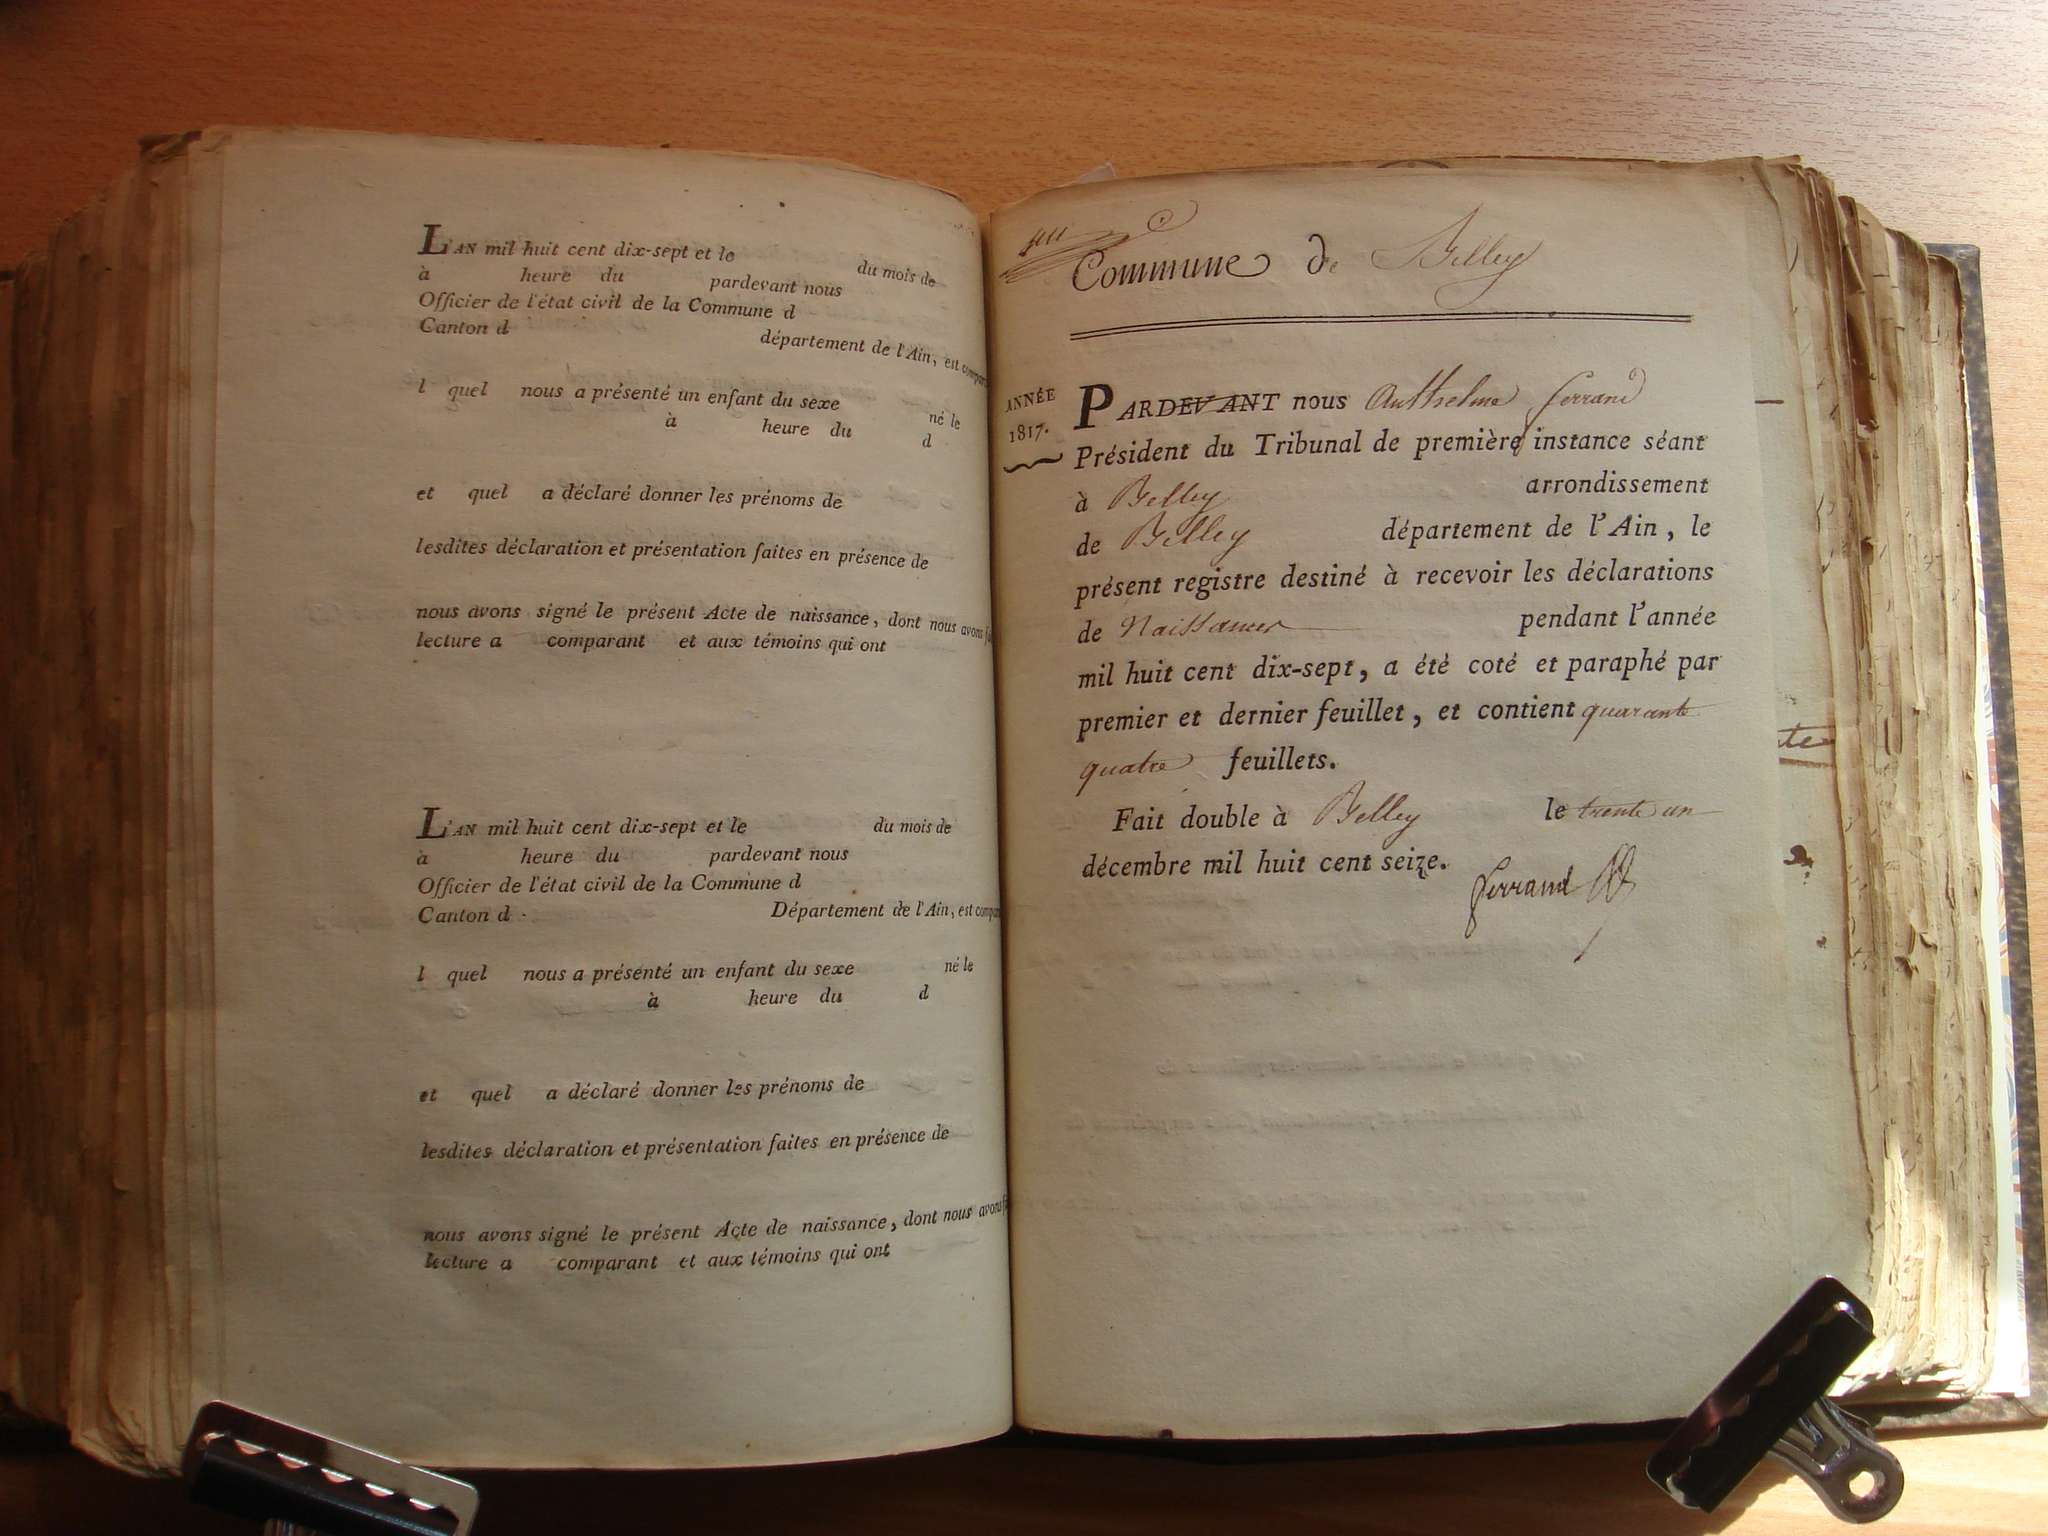 L'AN mil huit cent dix-sept et le du mois de
à heure du pardevant nous
Officier de l'état civil de la Commune d
Canton d département de l'Ain, est
l quel nous a présenté un enfant du sexe né le
à heure du d
et quel a déclaré donner les prénoms de
lesdites déclaration et présentation faites en présence de
nous avons signé le présent Acte de naissance, dont nous avons
lecture a comparant et aux témoins qui ont
L'AN mil huit cent dix-sept et le du mois de
à heure du pardevant nous
Officier de l'état civil de la Commune d
Canton d Département de l'Ain, est
l quel nous a présenté un enfant du sexe né le
à heure du d
et quel a déclaré donner les prénoms de
lesdites déclaration et présentation faites en présence de
nous avons signé le présent Acte de naissance, dont nous avons
lecture a comparant et aux témoins qui ont
Commune de Belley
ANNÉE
1817.
PARDEVANT nous Anthelme ferrand
Président du Tribunal de première instance séant
à Belley arrondissement
de Belley département de l'Ain, le
présent registre destiné à recevoir les déclarations
de Naissances pendant l'année
mil huit cent dix-sept, a été coté et paraphé par
premier et dernier feuillet, et contient quarante
quatre feuillets.
Fait double à Belley le trente un
décembre mil huit cent seize.
ferrand